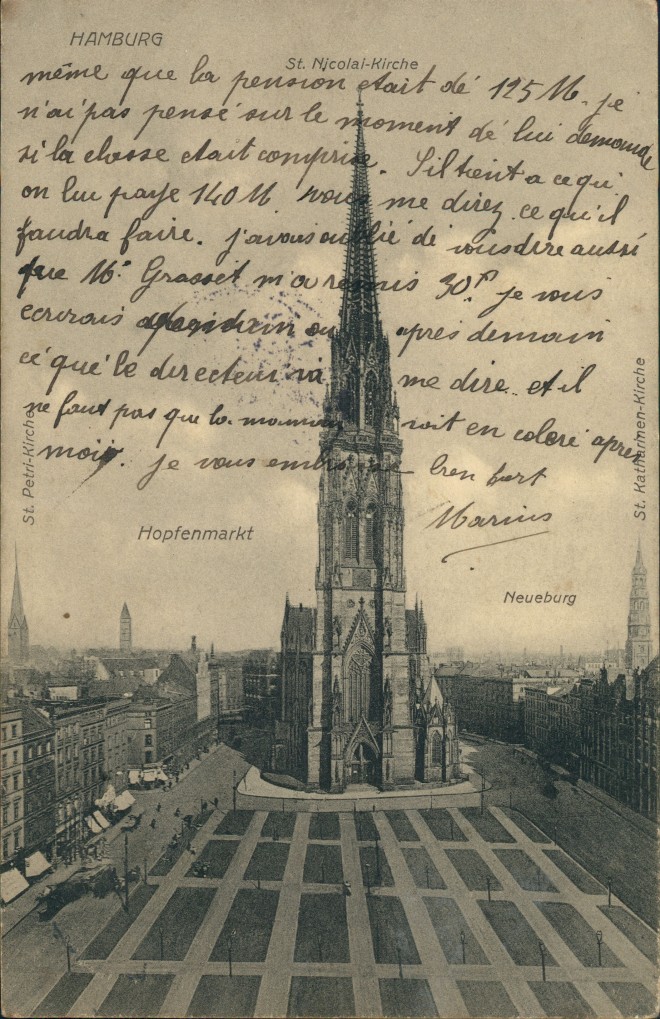 HAMBURG
St. Nicolai-Kirche
même que la pension etait dé 125 M. je
n'ai pas pensé sur le moment dé lui demande
si la classe etait comprise. S'il tient a ce qu'
on lui paye 140 M vous me direz ce qu'il
faudra faire. j'avais oublié dé vous dire aussi
que Mr Grasset m'a remis 30f je vous
ecrirais demain ou après demain
cé qué le directeur va me dire et il
ne faut pas que la maman soit en coleré après
moi. je vous embrasse bien fort
Marius
St. Petri-Kirche
St. Katharinen-Kirche
Hopfenmarkt
Neueburg